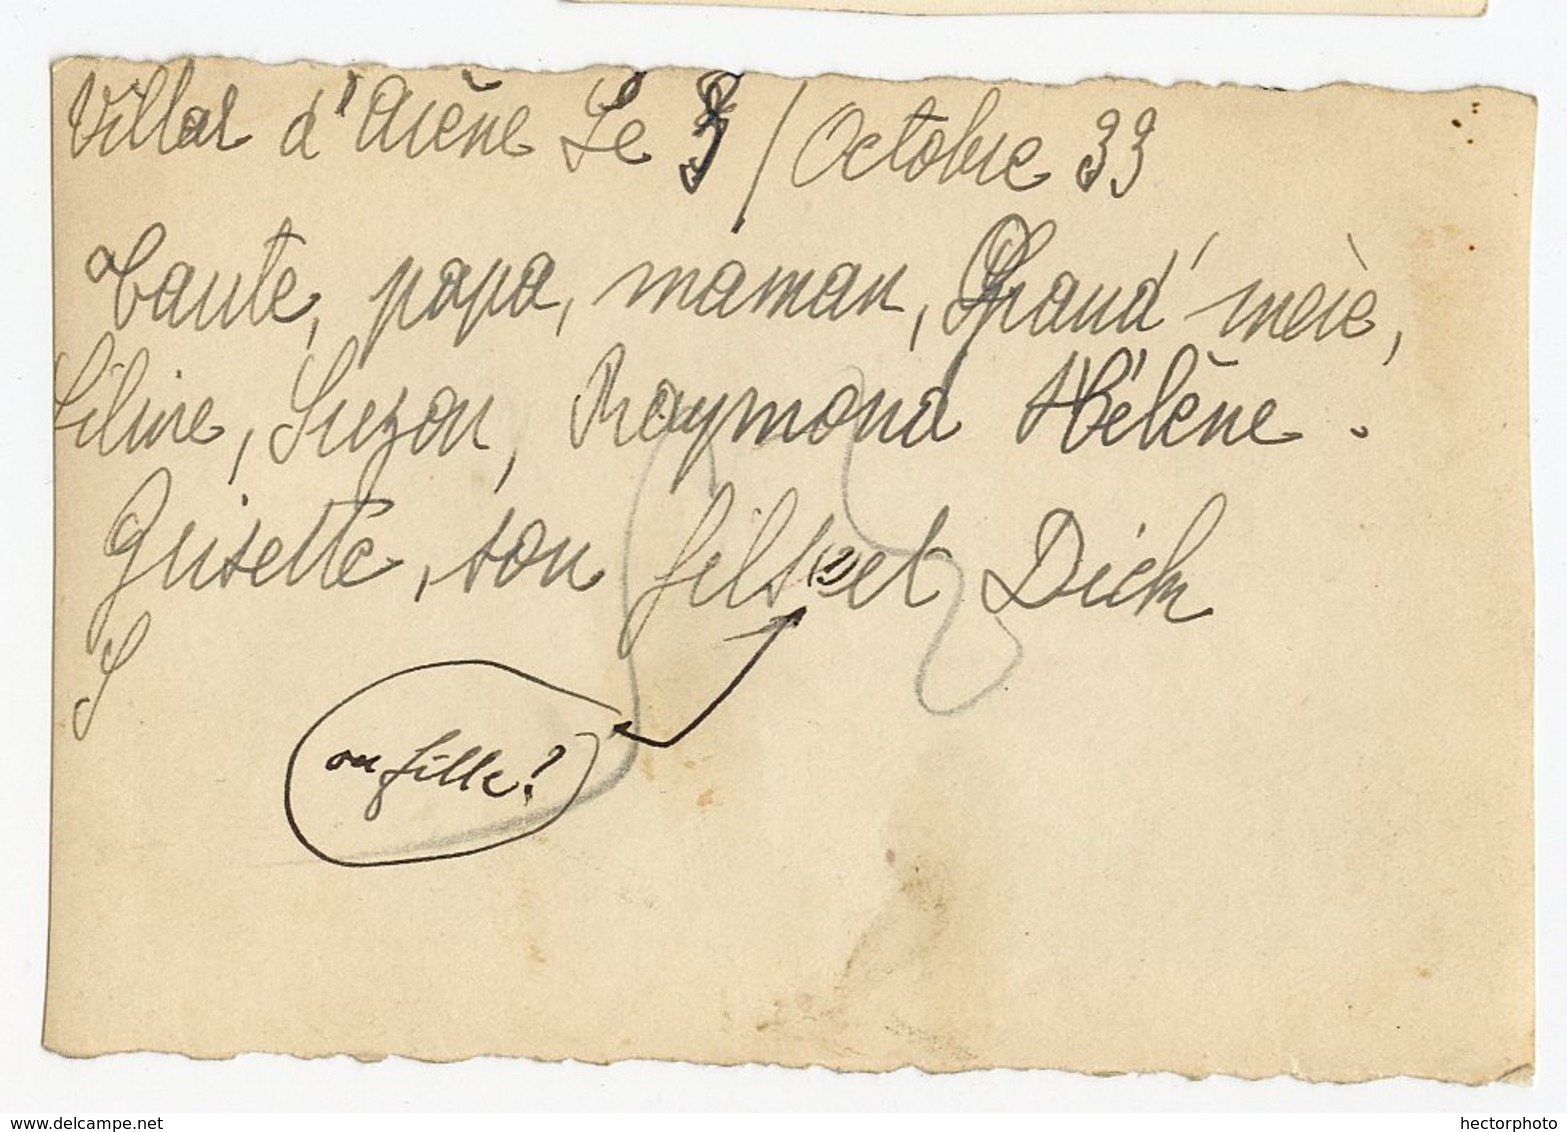 Villar d'Arène Le 3 / Octobre 33
Tante, papa, maman, Grand' mère,
Liline, Suzon, Raymond Hélène.
Grisette, son fils (?) et Dick
ou fille?
www.delcampe.net
hectorphoto